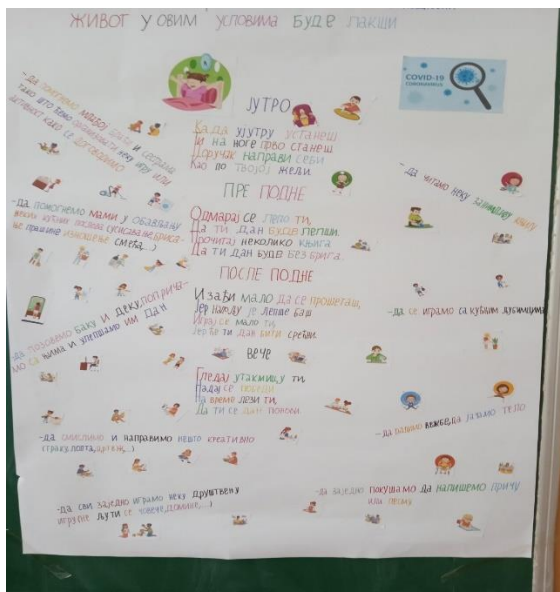 ЖИВОТ У ОВИМ УСЛОВИМА БУДЕ ЛАКШИ
COVID-19
CORONAVIRUS
ЈУТРО
Када ујутру устанеш
Ти на ноге прво станеш.
Доручак направи себи
Као по твојој жељи.
ПРЕ ПОДНЕ
Одмарај се лепо ти,
Да ти дан буде лепши.
Прочитај неколико књига
Да ти дан буде без брига.
ПОСЛЕ ПОДНЕ
Изађи мало да се прошеташ,
Јер напољу је лепше баш
Играј се мало ти,
Јер ће ти дан бити срећан.
ВЕЧЕ
Гледај утакмицу ти,
Надај се победи
На време лези ти,
Да ти се дан понови.
-ДА ПОМОГНЕМО МЛАЂОЈ БРАЋИ И СЕСТРАМА
ТАКО ШТО ЋЕМО ОРГАНИЗОВАТИ НЕКУ ИГРУ ИЛИ
АКТИВНОСТ КАКО СЕ ДОГОВОРИМО
-ДА ПОМОГНЕМО МАМИ У ОБАВЉАЊУ
НЕКИХ КУЋНИХ ПОСЛОВА (УСИСАВАЊЕ, БРИСА-
ЊЕ ПРАШИНЕ ИЗНОШЕЊЕ СМЕЋА...)
-ДА ПОЗОВЕМО БАКУ И ДЕКУ, ПОПРИЧА-
МО СА ЊИМА И УЛЕПШАМО ИМ ДАН
-ДА СМИСЛИМО И НАПРАВИМО НЕШТО КРЕАТИВНО
-ДА СВИ ЗАЈЕДНО ИГРАМО НЕКУ ДРУШТВЕНУ
ИГРУ (НЕ ЉУТИ СЕ ЧОВЕЧЕ, ДОМИНЕ,...)
-ДА ЧИТАМО НЕКУ ЗАНИМЉИВУ КЊИГУ
-ДА СЕ ИГРАМО СА КУЋНИМ ЉУБИМЦИМА
-ДА РАДИМО ВЕЖБЕ, ДА ЈАЧАМО ТЕЛО
-ДА ЗАЈЕДНО ПОКУШАМО ДА НАПИШЕМО ПРИЧУ
ИЛИ ПЕСМУ